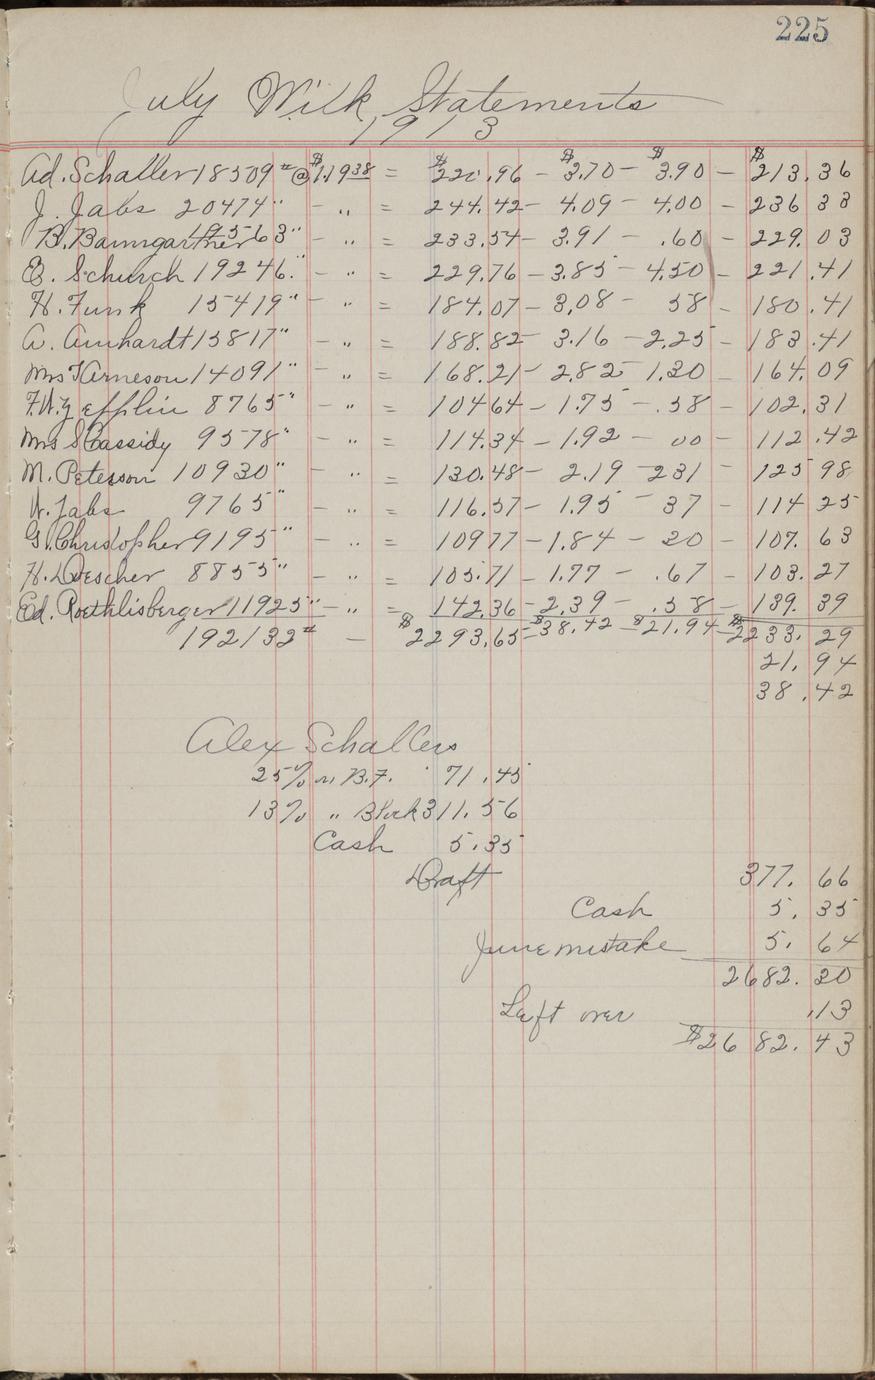 225
July Milk Statements
1913
Ad. Schaller 18509 # @ $1.19 38 = $220.96 - $3.70 - $3.90 - $213.36
J. Jabs 20474 " - " = 244.42 - 4.09 - 4.00 - 236 33
B. Baumgartner 19563 " - " = 233.54 - 3.91 - .60 - 229.03
E. Schurch 19246. " - " = 229.76 - 3.85 - 4.50 - 221.41
H. Funk 15419 " - " = 184.07 - 3.08 - 58 - 180.41
A. Amhardt 15817 " - " = 188.82 - 3.16 - 2.25 - 183.41
Mrs T Arneson 14091 " - " = 168.21 - 2.82 - 1.30 - 164.09
F.W. Zefflin 8765 " - " = 104 64 - 1.75 - .58 - 102.31
Mrs S Cassidy 9578 " - " = 114.34 - 1.92 - 00 - 112.42
M. Peterson 10930 " - " = 130.48 - 2.19 - 2 31 - 125 98
W. Jabs 9765 " - " = 116.57 - 1.95 - 37 - 114 25
G. Christopher 9195 " - " = 109 77 - 1.84 - 30 - 107.63
H. Loescher 8855 " - " = 105.71 - 1.77 - .67 - 103.27
Ed. Roethlisberger 11925 " - " = 142.36 - 2.39 - .58 - 139.39
192132 # - $2293.65 - $38.42 - $21.94 - $2233.29
21.94
38.42
Alex Schallers
25% on B.F. 71.45
13% " Block 311.56
Cash 5.35
Draft 377.66
Cash 5.35
June mistake 5.64
2682.30
Left over .13
$2682.43